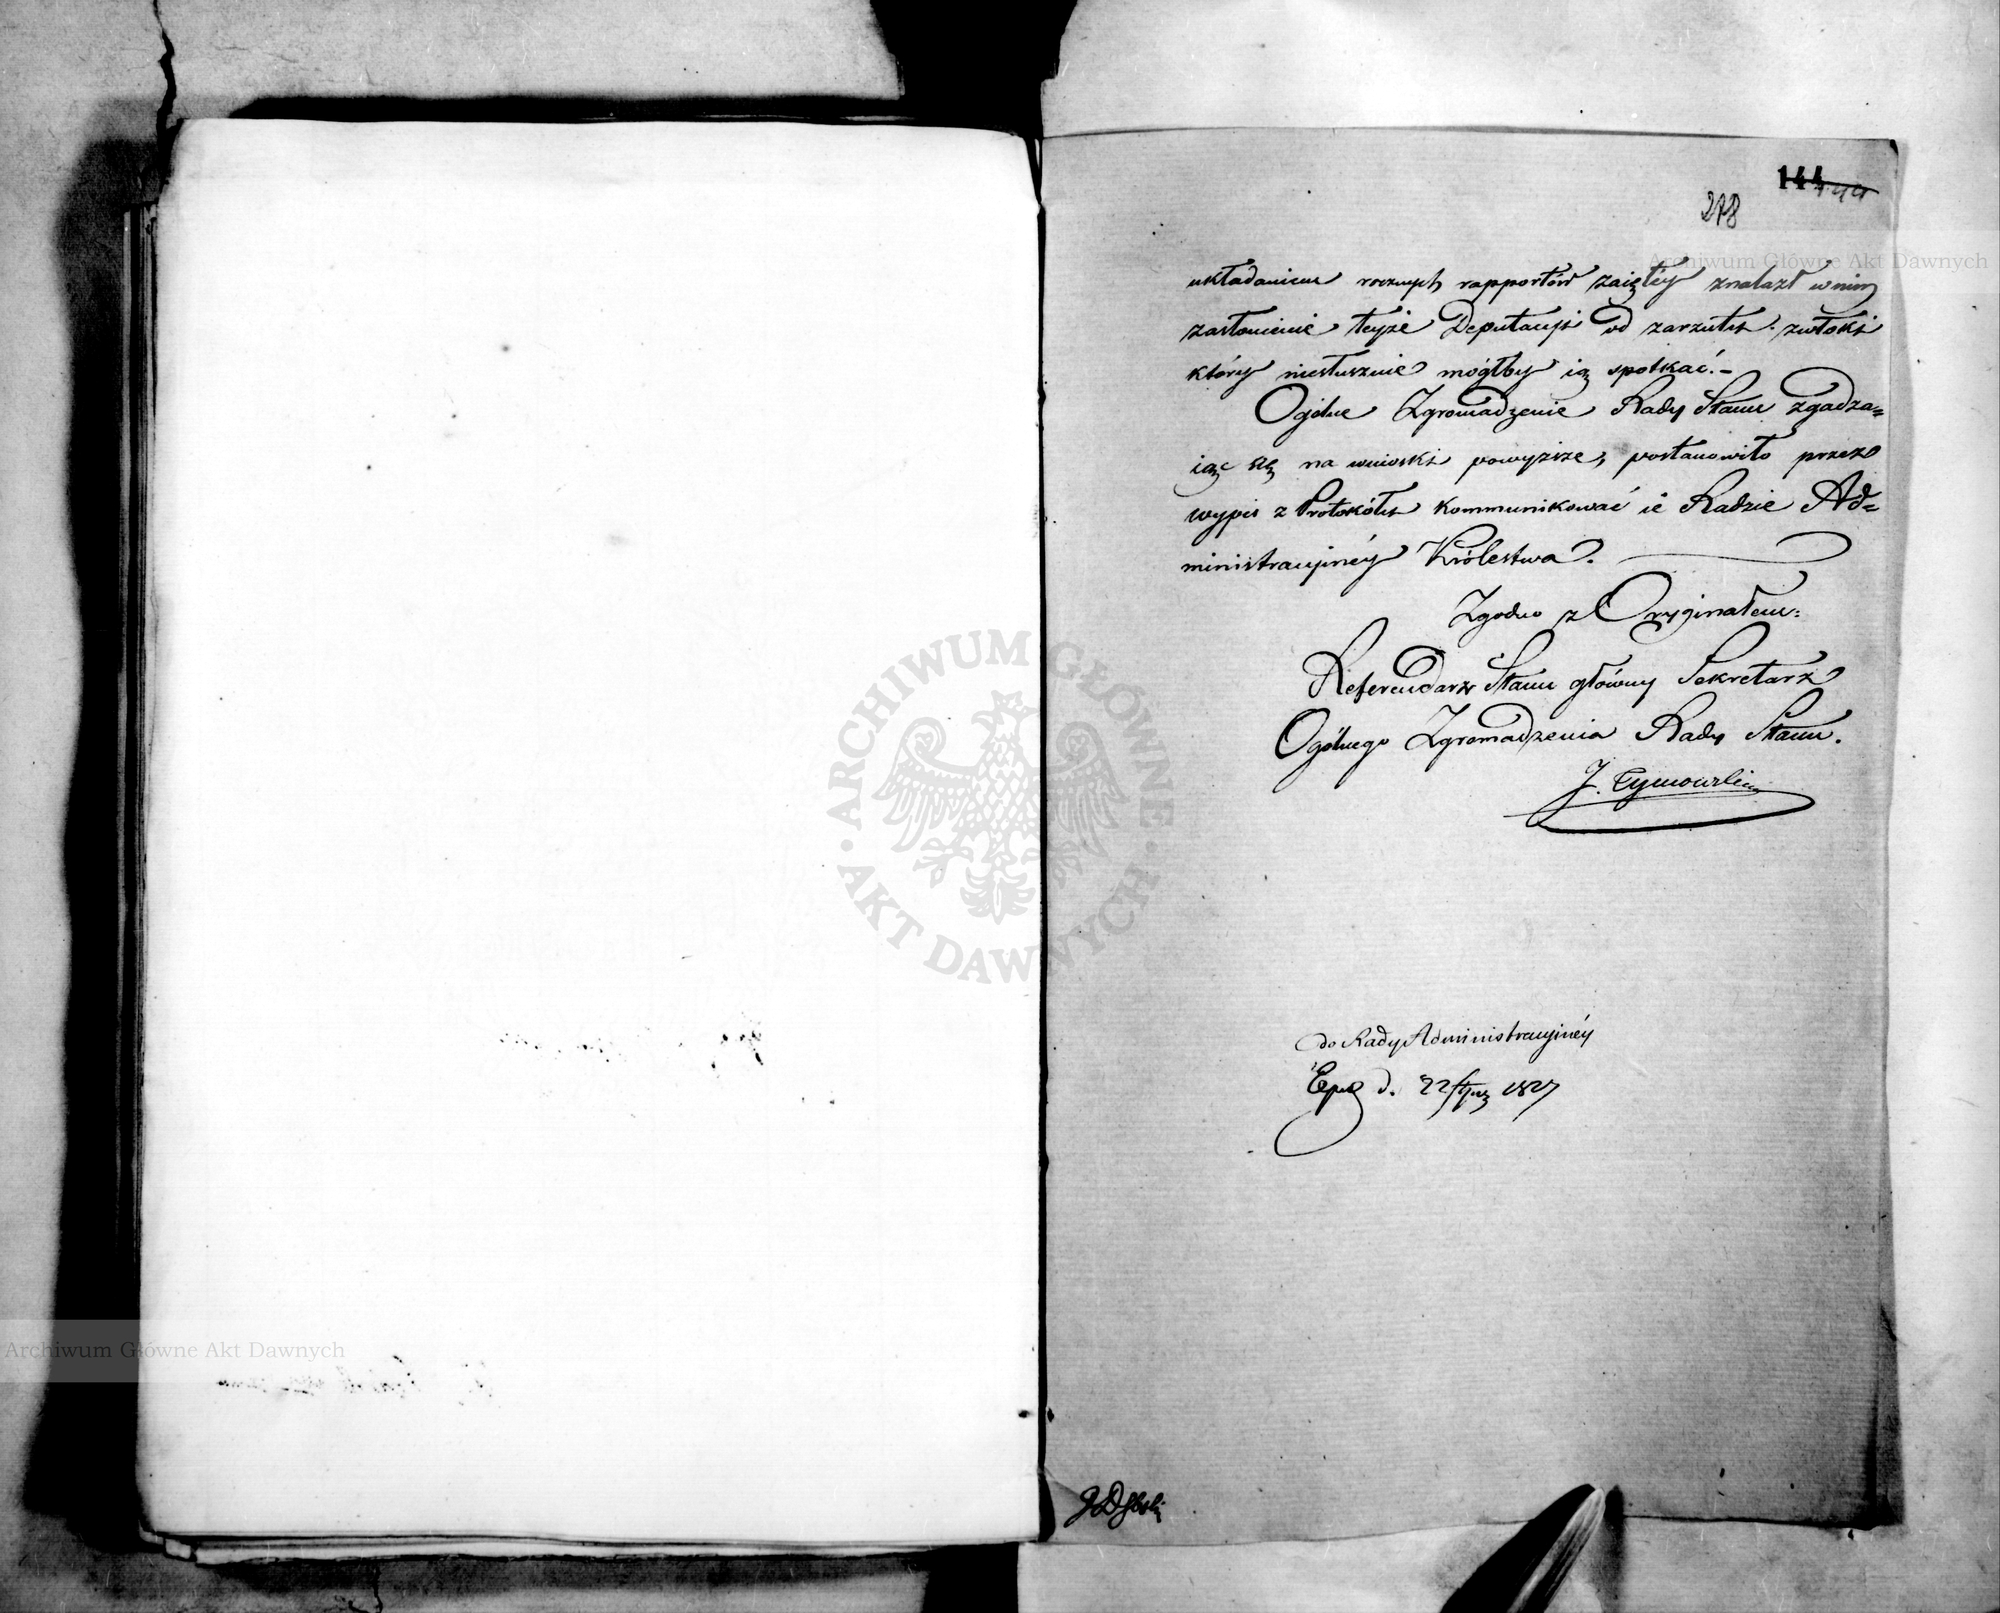 144
218
układaniem rocznych rapportów zaiętéy znalazł w nim
zasłonienie teyże Deputacyi od zarzutu zwłoki
który niesłusznie mógłby ią spotkać.-
Ogólne Zgromadzenie Rady Stanu zgadza=
iąc się na wnioski powyższe, postanowiło przez
wypis z Protokółu kommunikować ie Radzie Ad=
ministracyinéy Królestwa.
Zgodno z Oryginałem:
Referendarz Stanu główny Sekretarz
Ogólnego Zgromadzenia Rady Stanu.
J. Tymowski
do Rady Administracyinéy
d. 22 1827
Archiwum Główne Akt Dawnych
ARCHIWUM GŁÓWNE AKT DAWNYCH
Archiwum Główne Akt Dawnych